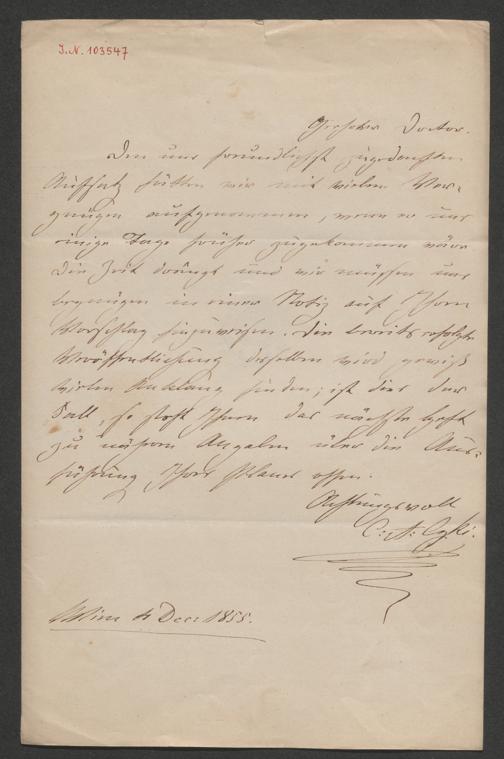 I.N. 103547
Geehrter Doctor.
Den uns freundlichst zugedachten
Aufsatz hätten wir mit vielem Ver-
gnügen aufgenommen, wenn er uns
einige Tage früher zugekommen wäre
Die Zeit drängt und wir müssen uns
begnügen in einer Notiz auf Ihren
Vorschlag hinzuweisen. Die bereits erfolgte
Veröffentlichung desselben wird gewiß
vielen Anklang finden; ist dies der
Fall, so steht Ihnen das nächste Heft
zu nähern Angaben über die Aus-
führung Ihres Planes offen.
Achtungsvoll
Wien 4 Dec: 1855.